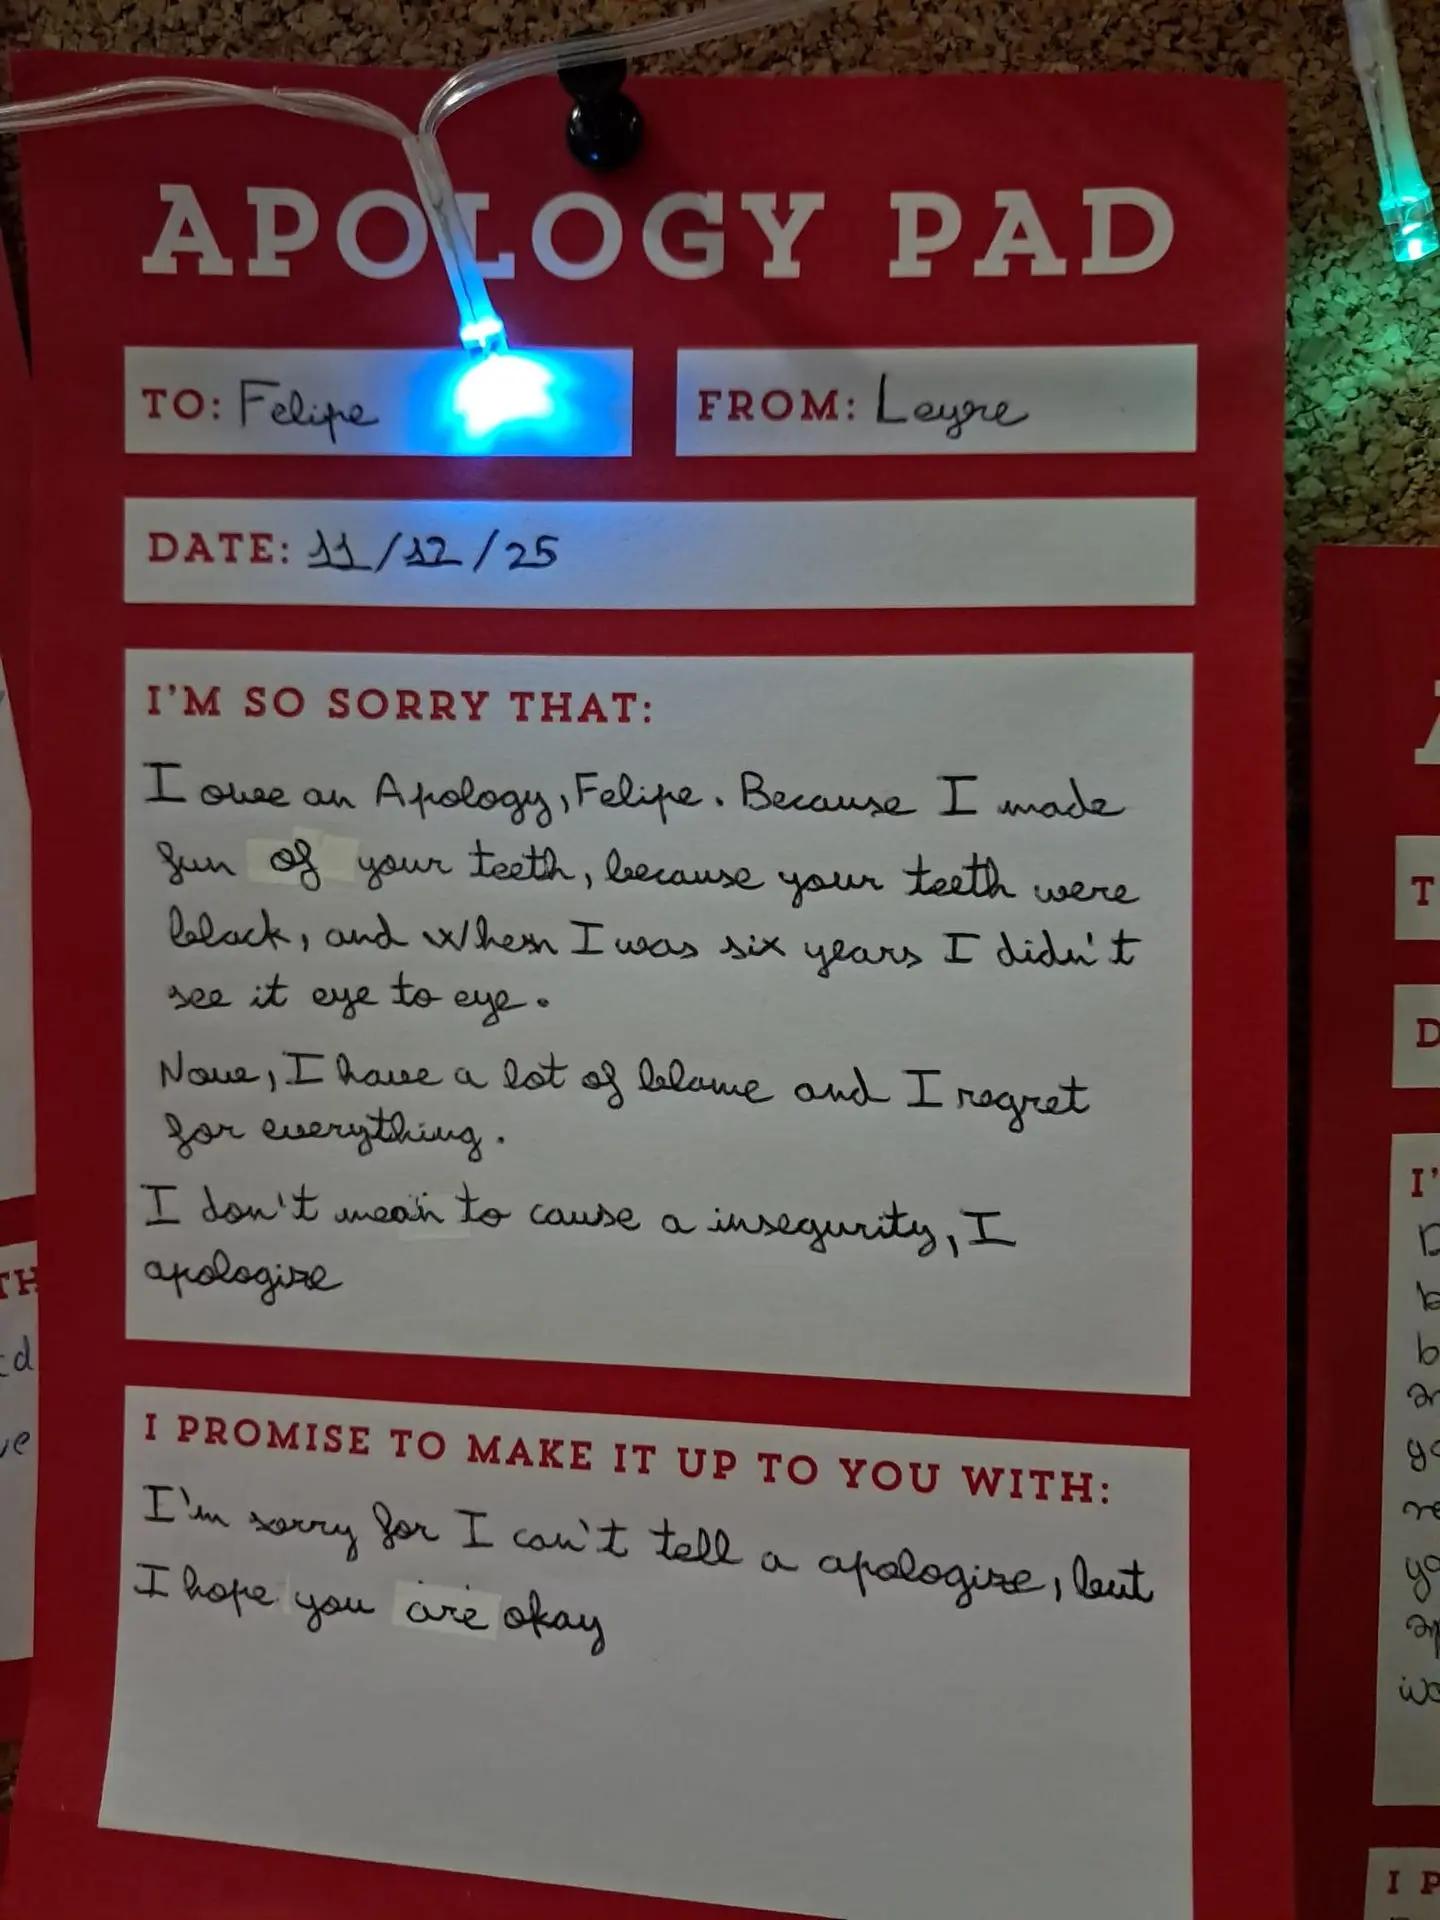 APOLOGY PAD
TO: Felipe
FROM: Leyre
DATE: 11/12/25
I'M SO SORRY THAT:
I owe an Apology, Felipe. Because I made
fun of your teeth, because your teeth were
black, and when I was six years I didn't
see it eye to eye.
Now, I have a lot of blame and I regret
for everything.
I don't mean to cause a insegurity, I
apologize
I PROMISE TO MAKE IT UP TO YOU WITH:
I'm sorry for I can't tell a apologize, but
I hope you are okay